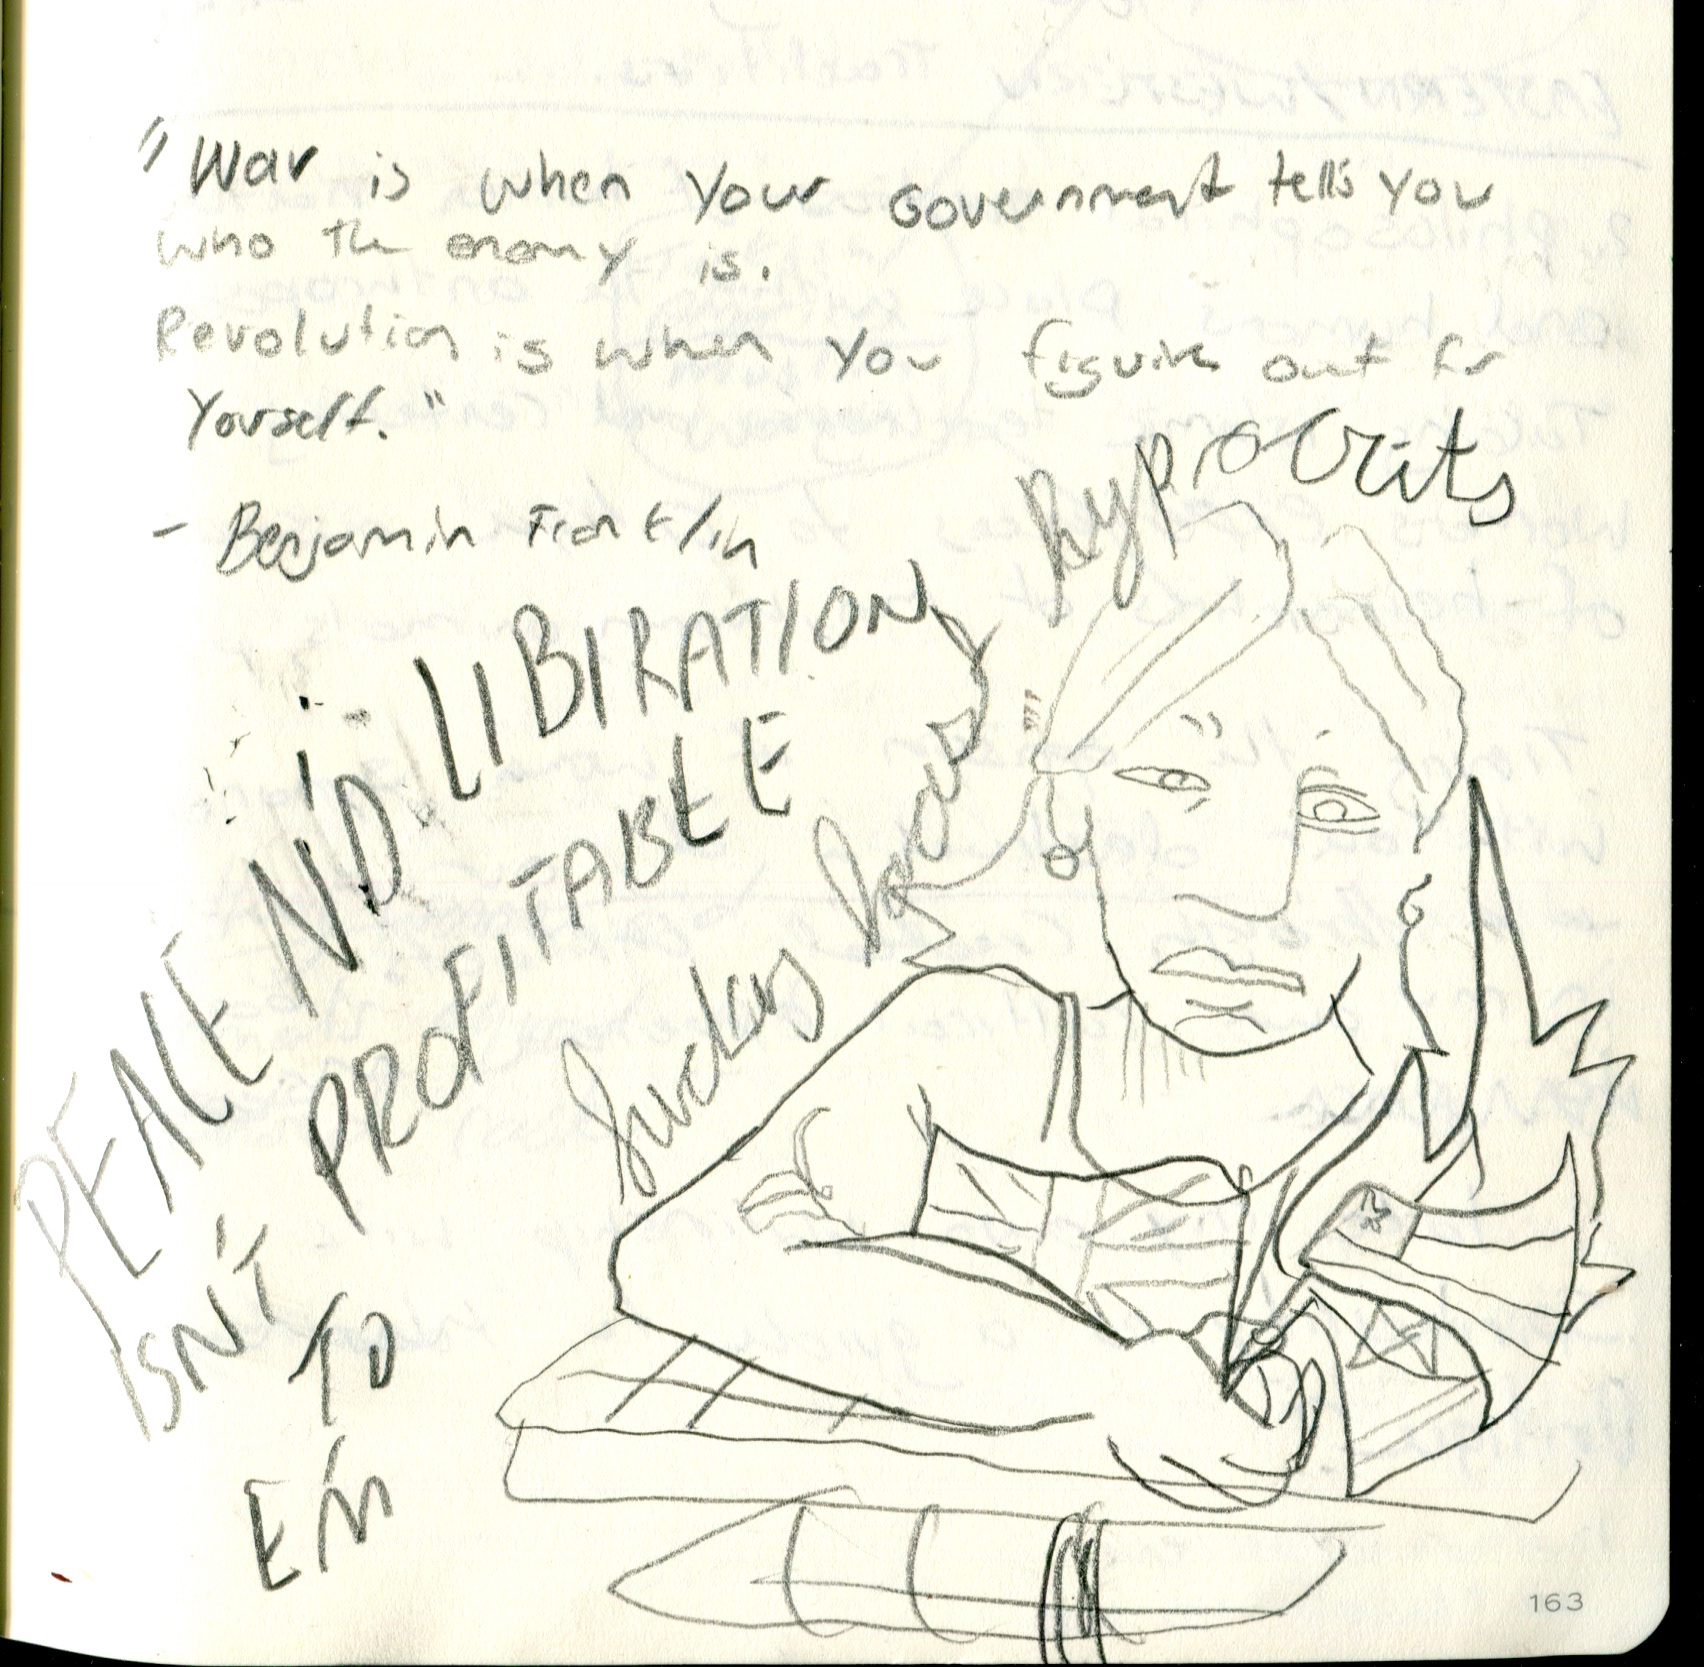 "War is when your Government tells you
who the enemy is.
Revolution is when you figure out for
yourself."
- Benjamin Franklin
hypocrits
PEACE ND LIBIRATION
ISN'T PROFITABLE
TO
EM
Judas
163